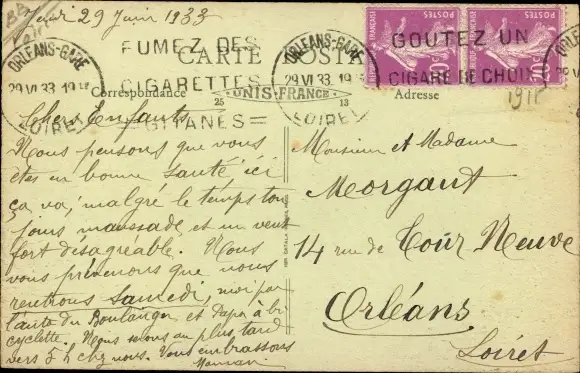 Jeudi 29 Juin 1933
ORLEANS-GARE
29 VI 33
LOIRET
FUMEZ DES
CIGARETTES
=GITANES=
CARTE POSTALE
ORLEANS-GARE
29 VI 33
LOIRET
GOUTEZ UN
CIGARE DE CHOIX
REPUBLIQUE FRANÇAISE
POSTES
POSTES
Correspondance
UNIS-FRANCE
25
13
Adresse
Chers Enfants
Nous pensons que vous
êtes en bonne santé, ici
ça va, malgré le temps tou
jours maussade, et un vent
fort désagréable. Nous
vous prévenons que nous
rentrons Samedi, moi par
l'auto du Boulanger et Papa à bi
cyclette. Nous serons au plus tard
vers 5 h chez nous. Vous embrassons
Maman
Monsieur et Madame
Morgant
14 rue de Tour Neuve
Orléans
Loiret